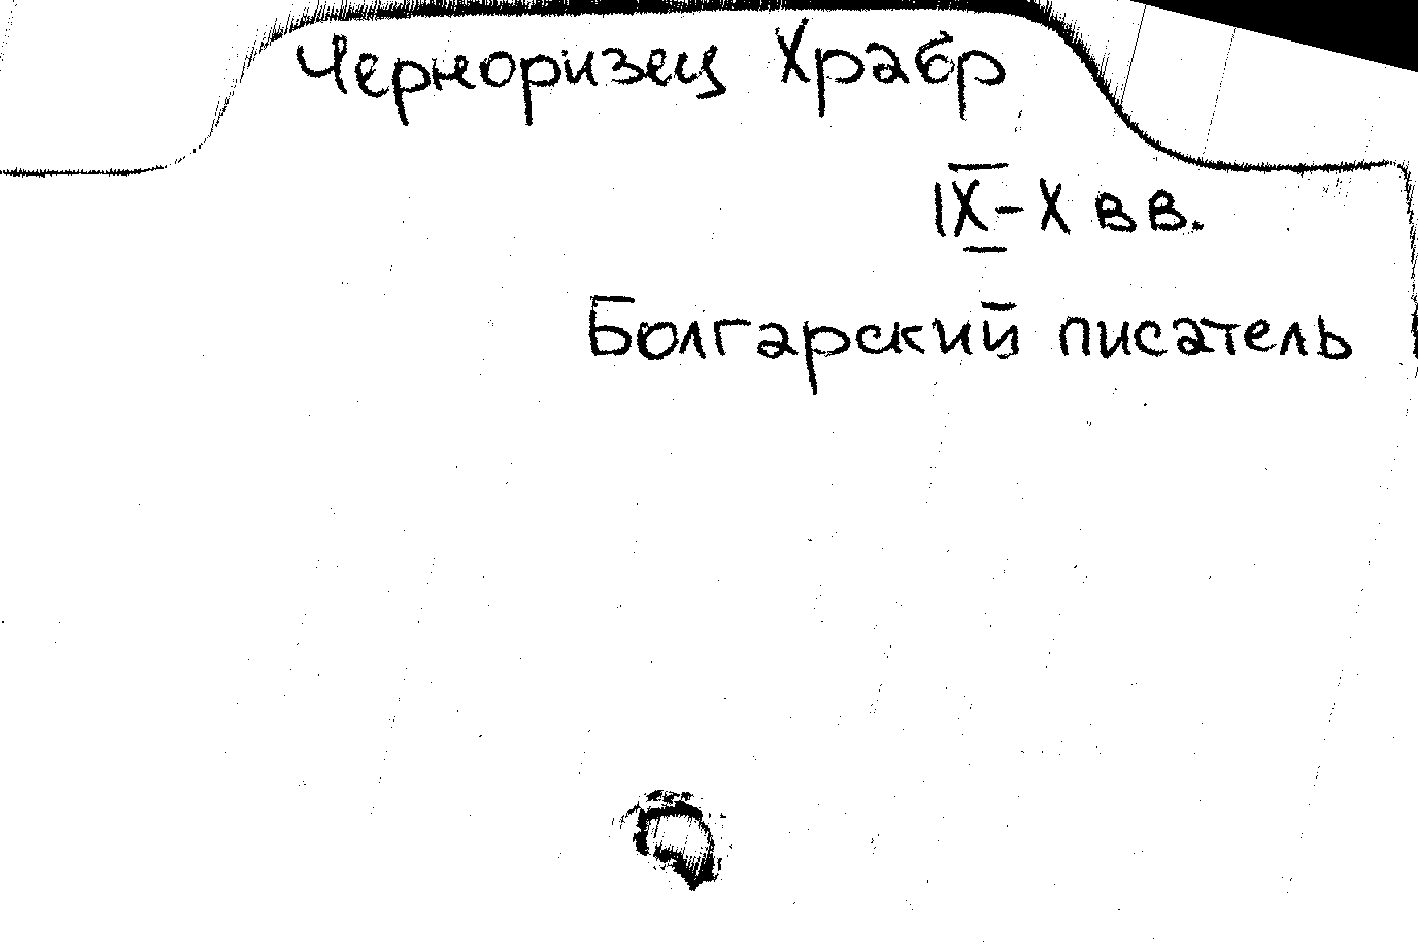 Черноризец Храбр
IX-X вв.
Болгарский писатель